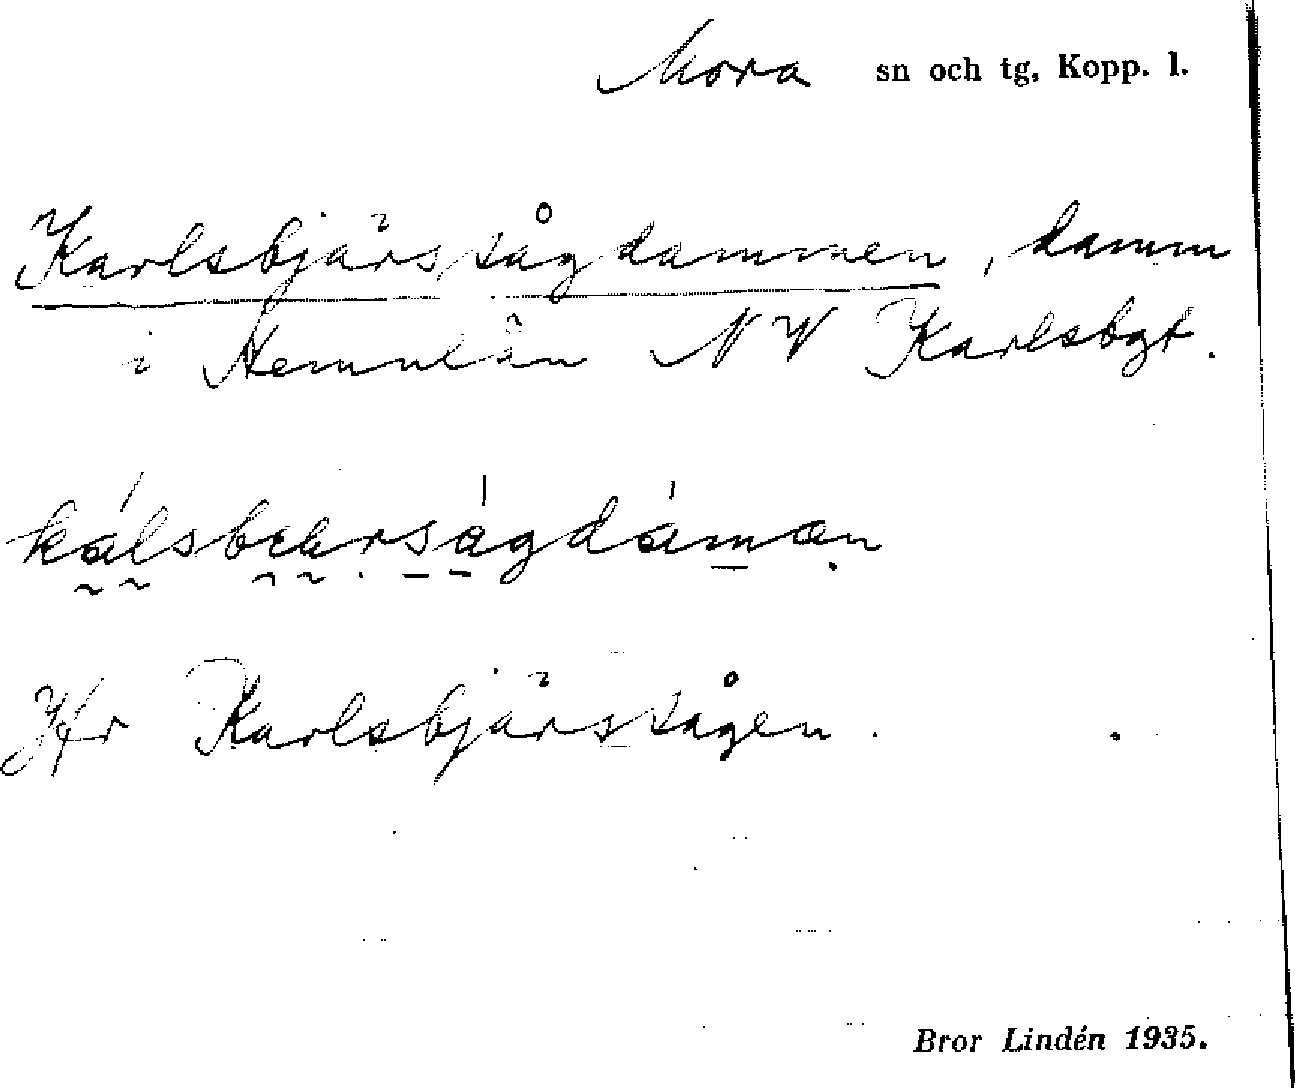 Mora sn och tg, Kopp. l.
Karlsbjärssågdammen, damm
i Hemulån NV Karlsbgt.
Jfr Karlsbjärssågen.
Bror Lindén 1935.